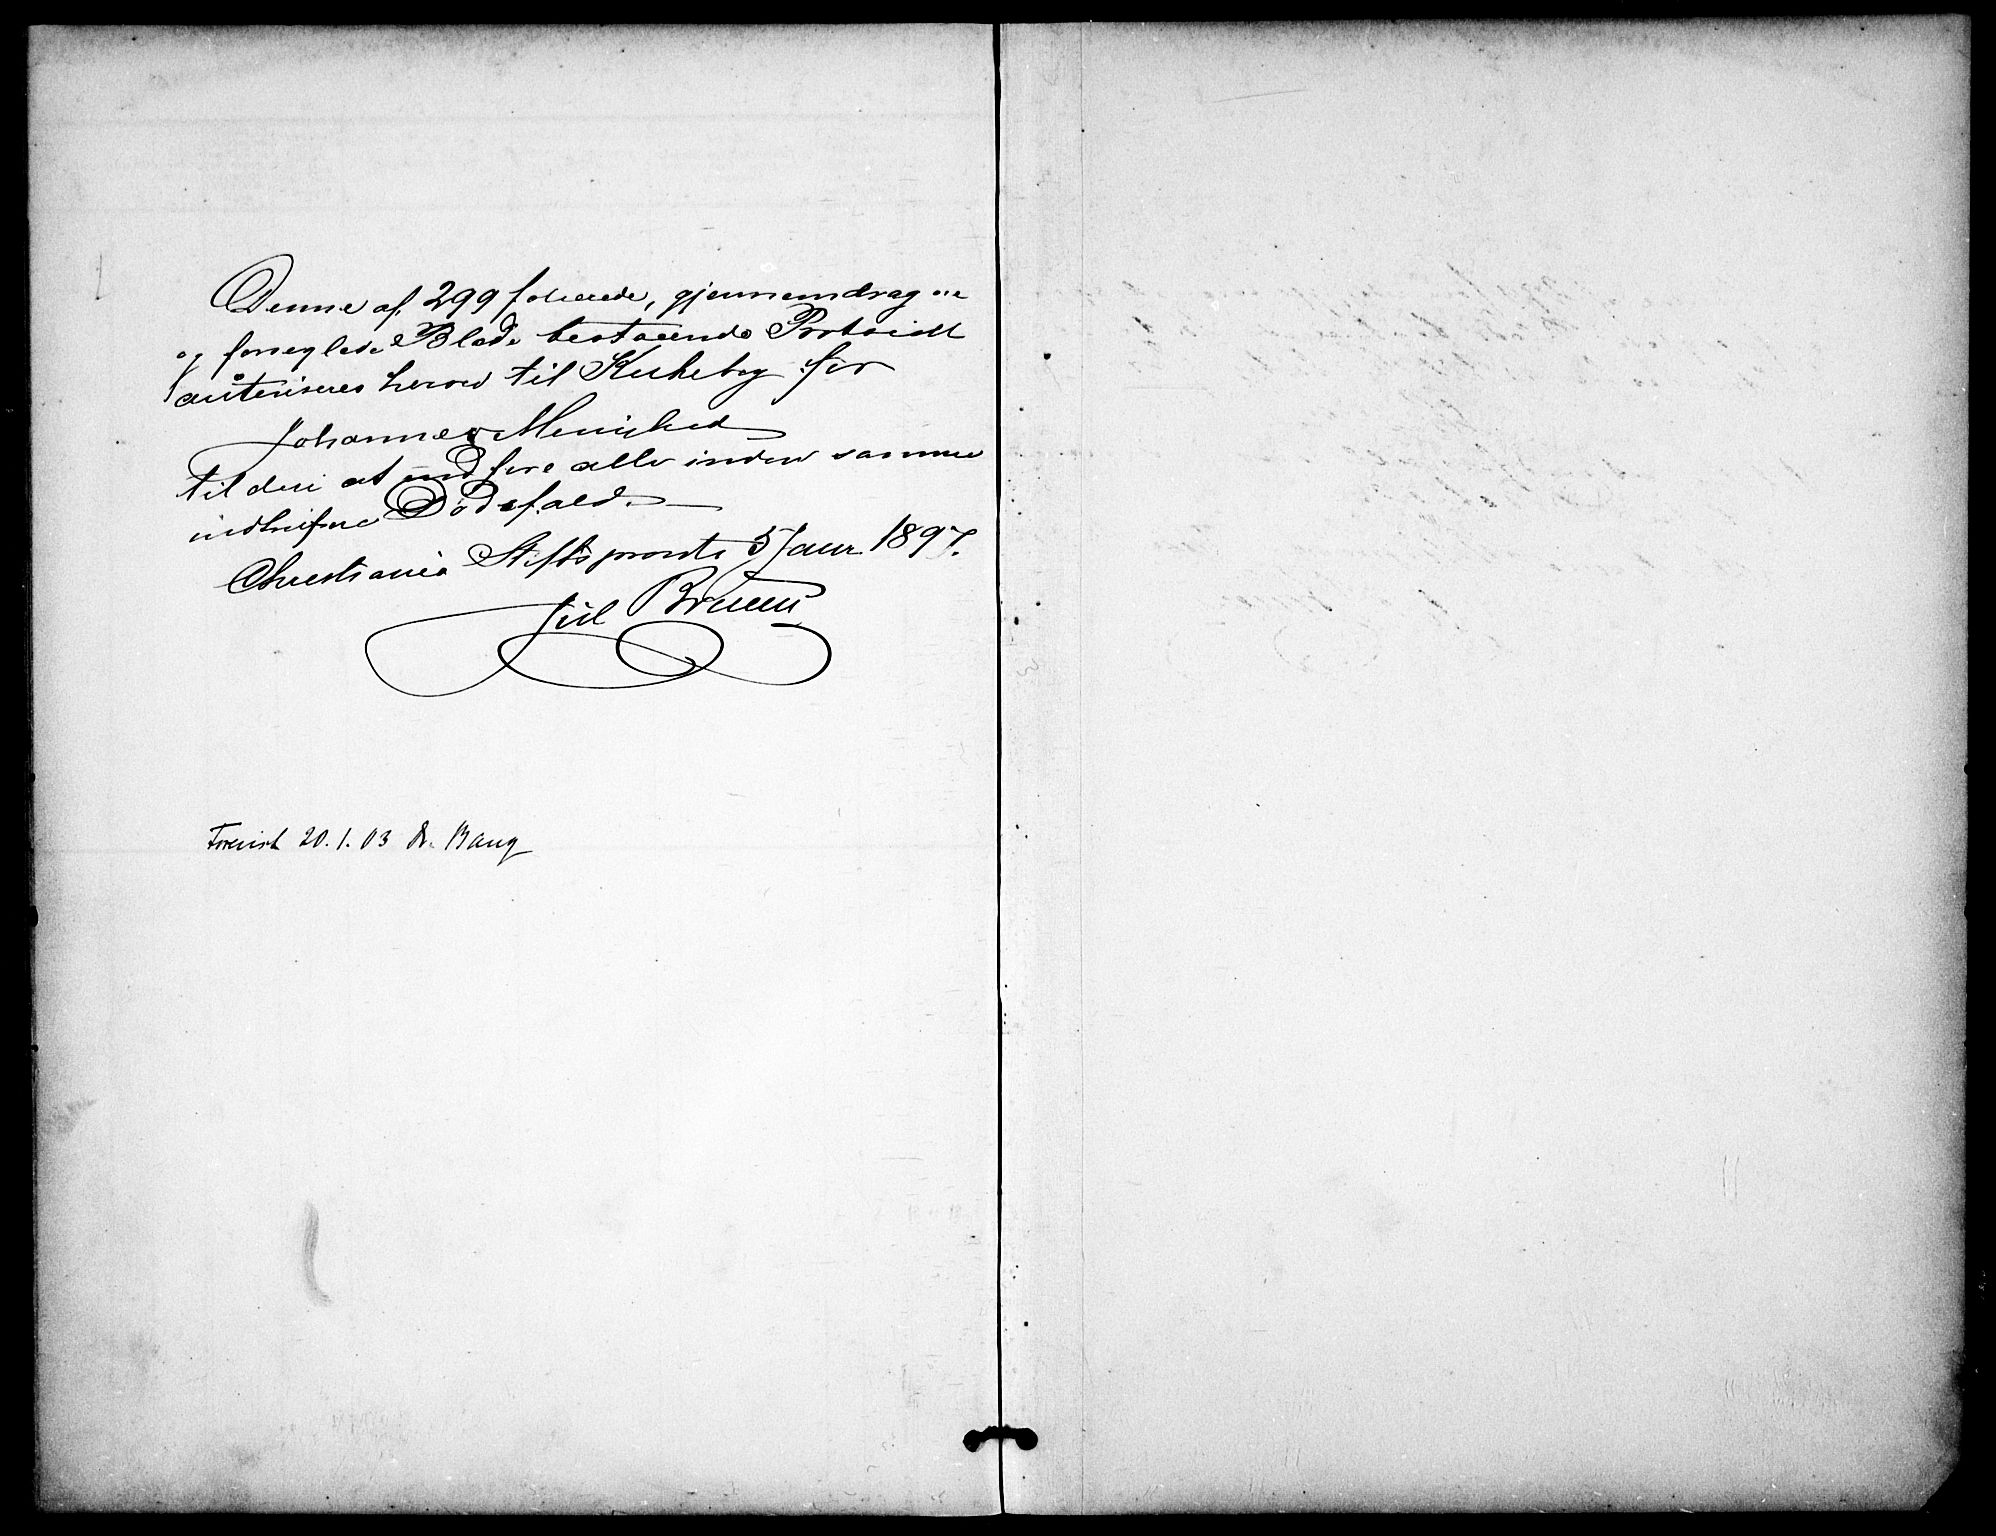 Denne af 299 folierede, gjennemdragne
og forseglede Blade bestaaende Protocoll
autoriseres herved til Kirkebog for
Johannes Menighed
til deri at indføre alle inden samme
indtrufne Dødsfald.
Christiania Stiftsprovsti 5 Janr. 1897.
Jul Bruun
Forevist 20.1.03 Dr. Bang